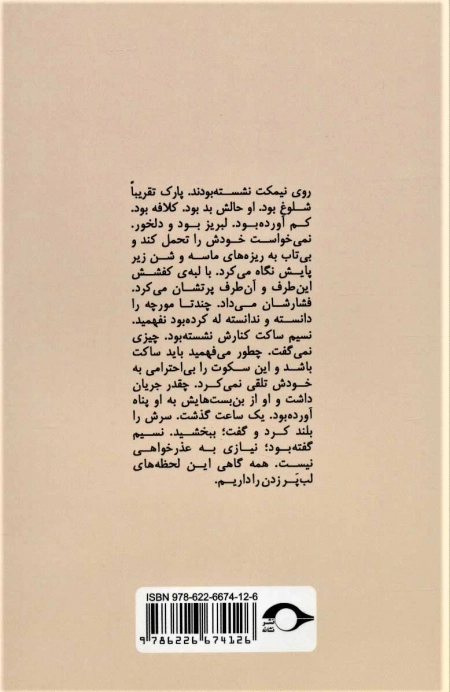 روی نیمکت نشسته‌بودند. پارک تقریباً
شلوغ بود. او حالش بد بود. کلافه بود.
کم آورده‌بود. لبریز بود و دلخور.
نمی‌خواست خودش را تحمل کند و
بی‌تاب به ریزه‌های ماسه و شن زیر
پایش نگاه می‌کرد. با لبه‌ی کفشش
این‌طرف و آن‌طرف پرتشان می‌کرد.
فشارشان می‌داد. چندتا مورچه را
دانسته و ندانسته له کرده‌بود نفهمید.
نسیم ساکت کنارش نشسته‌بود. چیزی
نمی‌گفت. چطور می‌فهمید باید ساکت
باشد و این سکوت را بی‌احترامی به
خودش تلقی نمی‌کرد. چقدر جریان
داشت و او از بن‌بست‌هایش به او پناه
آورده‌بود. یک ساعت گذشت. سرش را
بلند کرد و گفت؛ ببخشید. نسیم
گفته‌بود؛ نیازی به عذرخواهی
نیست. همه گاهی این لحظه‌های
لب‌پَر زدن را داریم.
ISBN 978-622-6674-12-6
9 786226 674126
نشر